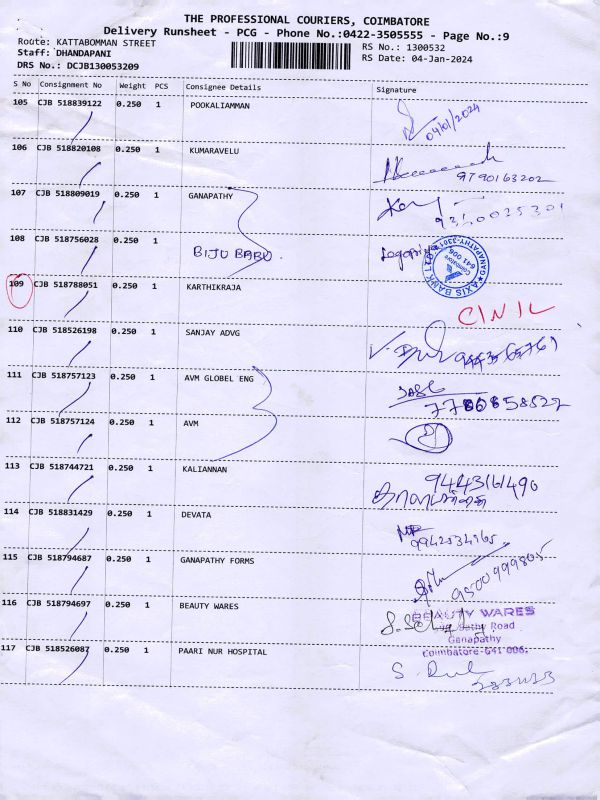 THE PROFESSIONAL COURIERS, COIMBATORE
Delivery Runsheet - PCG - Phone No.:0422-3505555 - Page No.:9
Route: KATTABOMMAN STREET
Staff: DHANDAPANI
DRS No.: DCJB130053209
RS No.: 1300532
RS Date: 04-Jan-2024
S No Consignment No Weight PCS Consignee Details Signature
105 CJB 518839122 0.250 1 POOKALIAMMAN
04/01/2024
106 CJB 518820108 0.250 1 KUMARAVELU
9790163202
107 CJB 518809019 0.250 1 GANAPATHY
108 CJB 518756028 0.250 1 BIJU BABU
AXIS BANK
Coimbatore
641 006
109 CJB 518788051 0.250 1 KARTHIKRAJA
C/N/L
110 CJB 518526198 0.250 1 SANJAY ADVG
111 CJB 518757123 0.250 1 AVM GLOBEL ENG
112 CJB 518757124 0.250 1 AVM
113 CJB 518744721 0.250 1 KALIANNAN
114 CJB 518831429 0.250 1 DEVATA
9942534965
115 CJB 518794687 0.250 1 GANAPATHY FORMS
9500999805
116 CJB 518794697 0.250 1 BEAUTY WARES
BEAUTY WARES
Sathy Road
Ganapathy
Coimbatore-641 006.
117 CJB 518526087 0.250 1 PAARI NUR HOSPITAL